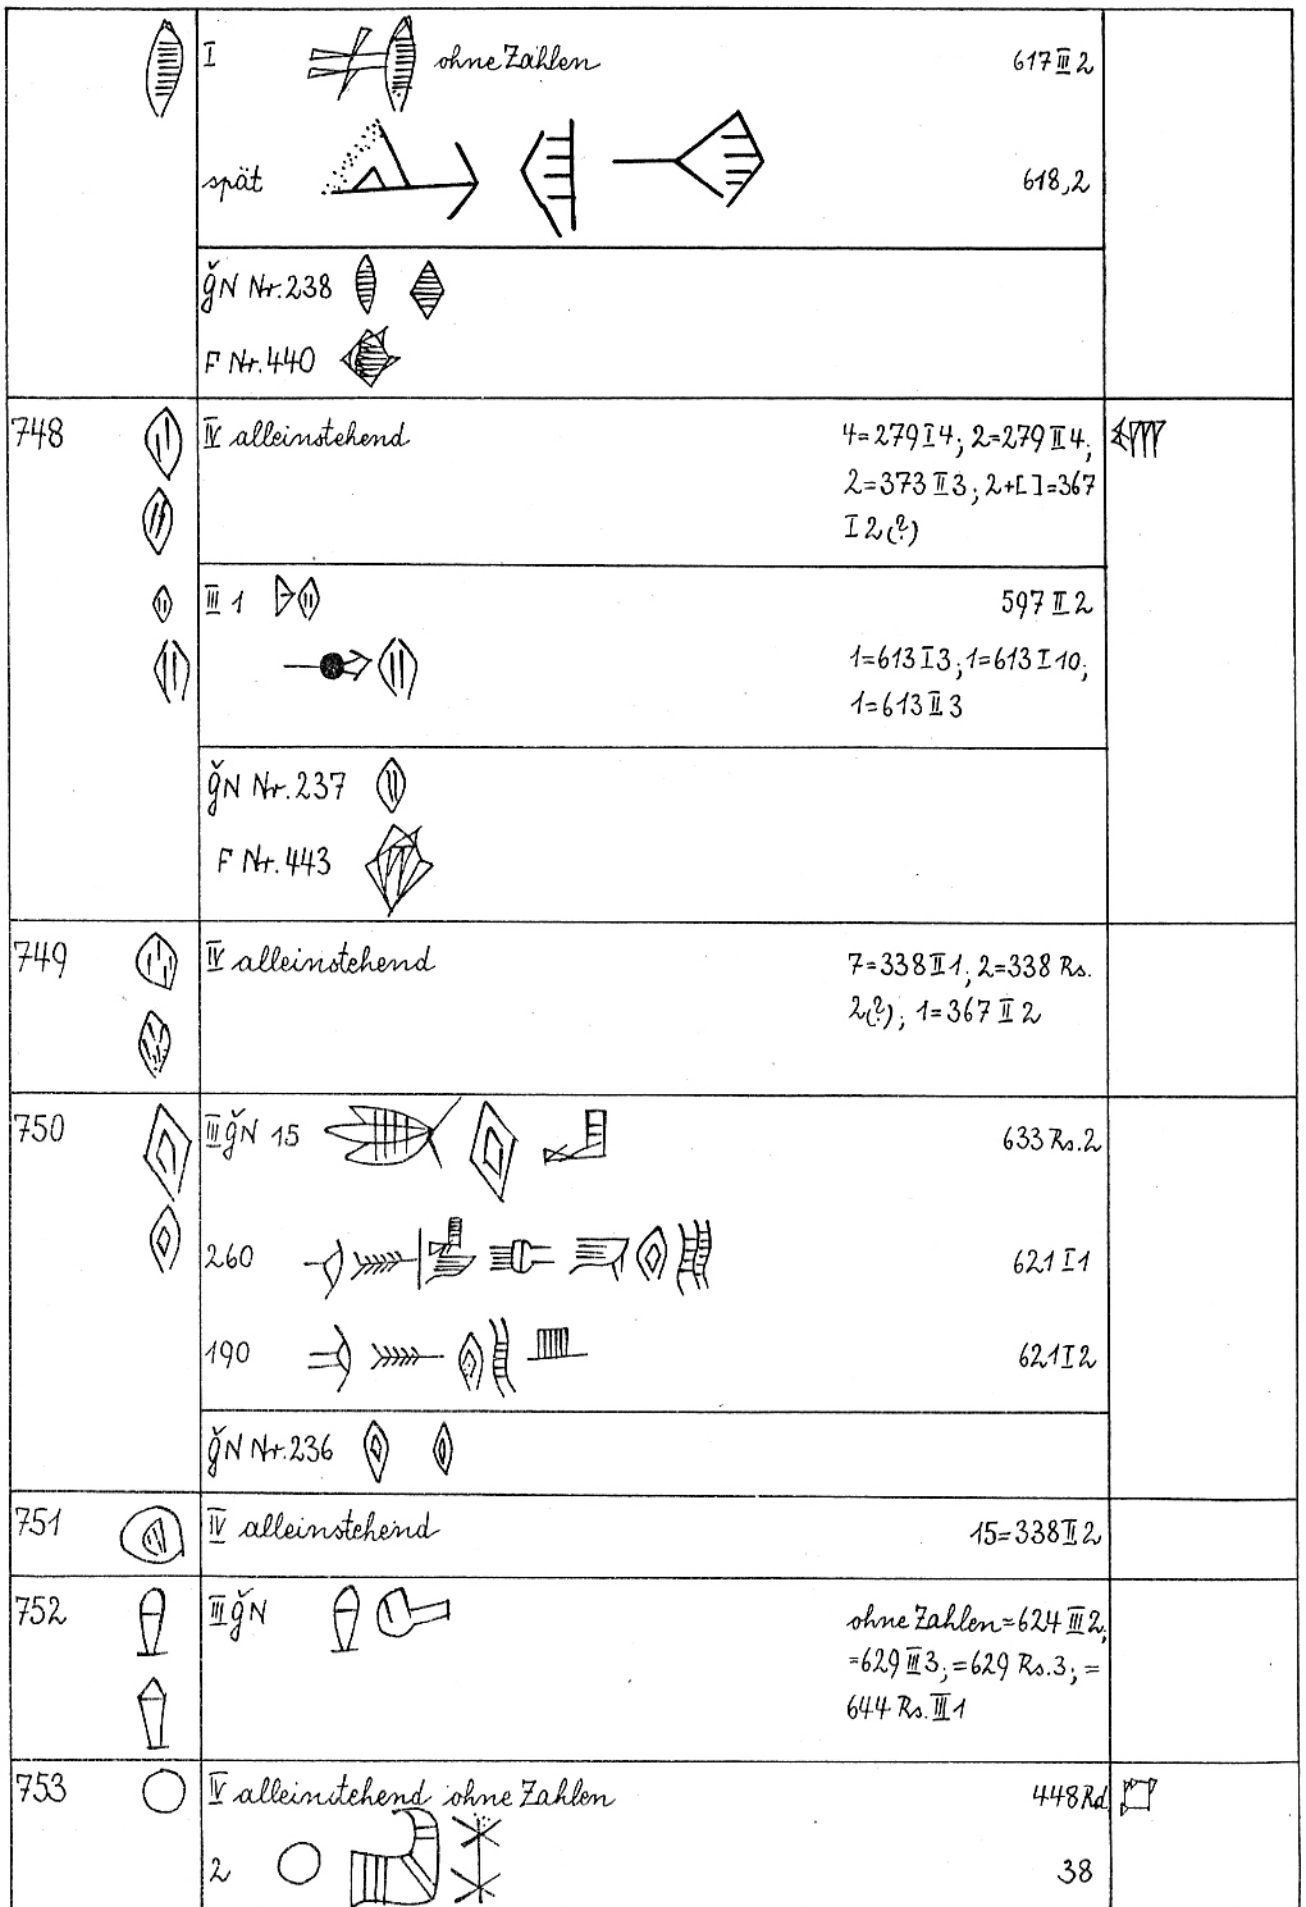 I ohne Zahlen 617 III 2
spät 618,2
ǧN Nr. 238
F Nr. 440
748 IV alleinstehend 4=279 I 4; 2=279 II 4;
2=373 II 3; 2+[ ]=367
I 2(?)
III 1 597 II 2
1=613 I 3; 1=613 I 10;
1=613 II 3
ǧN Nr. 237
F Nr. 443
749 IV alleinstehend 7=338 II 1; 2=338 Rs.
2(?); 1=367 II 2
750 III ǧN 15 633 Rs. 2
260 621 I 1
190 621 I 2
ǧN Nr. 236
751 IV alleinstehend 15=338 II 2
752 III ǧN ohne Zahlen=624 III 2;
=629 III 3; =629 Rs. 3; =
644 Rs. III 1
753 IV alleinstehend ohne Zahlen 448 Rd.
2 38